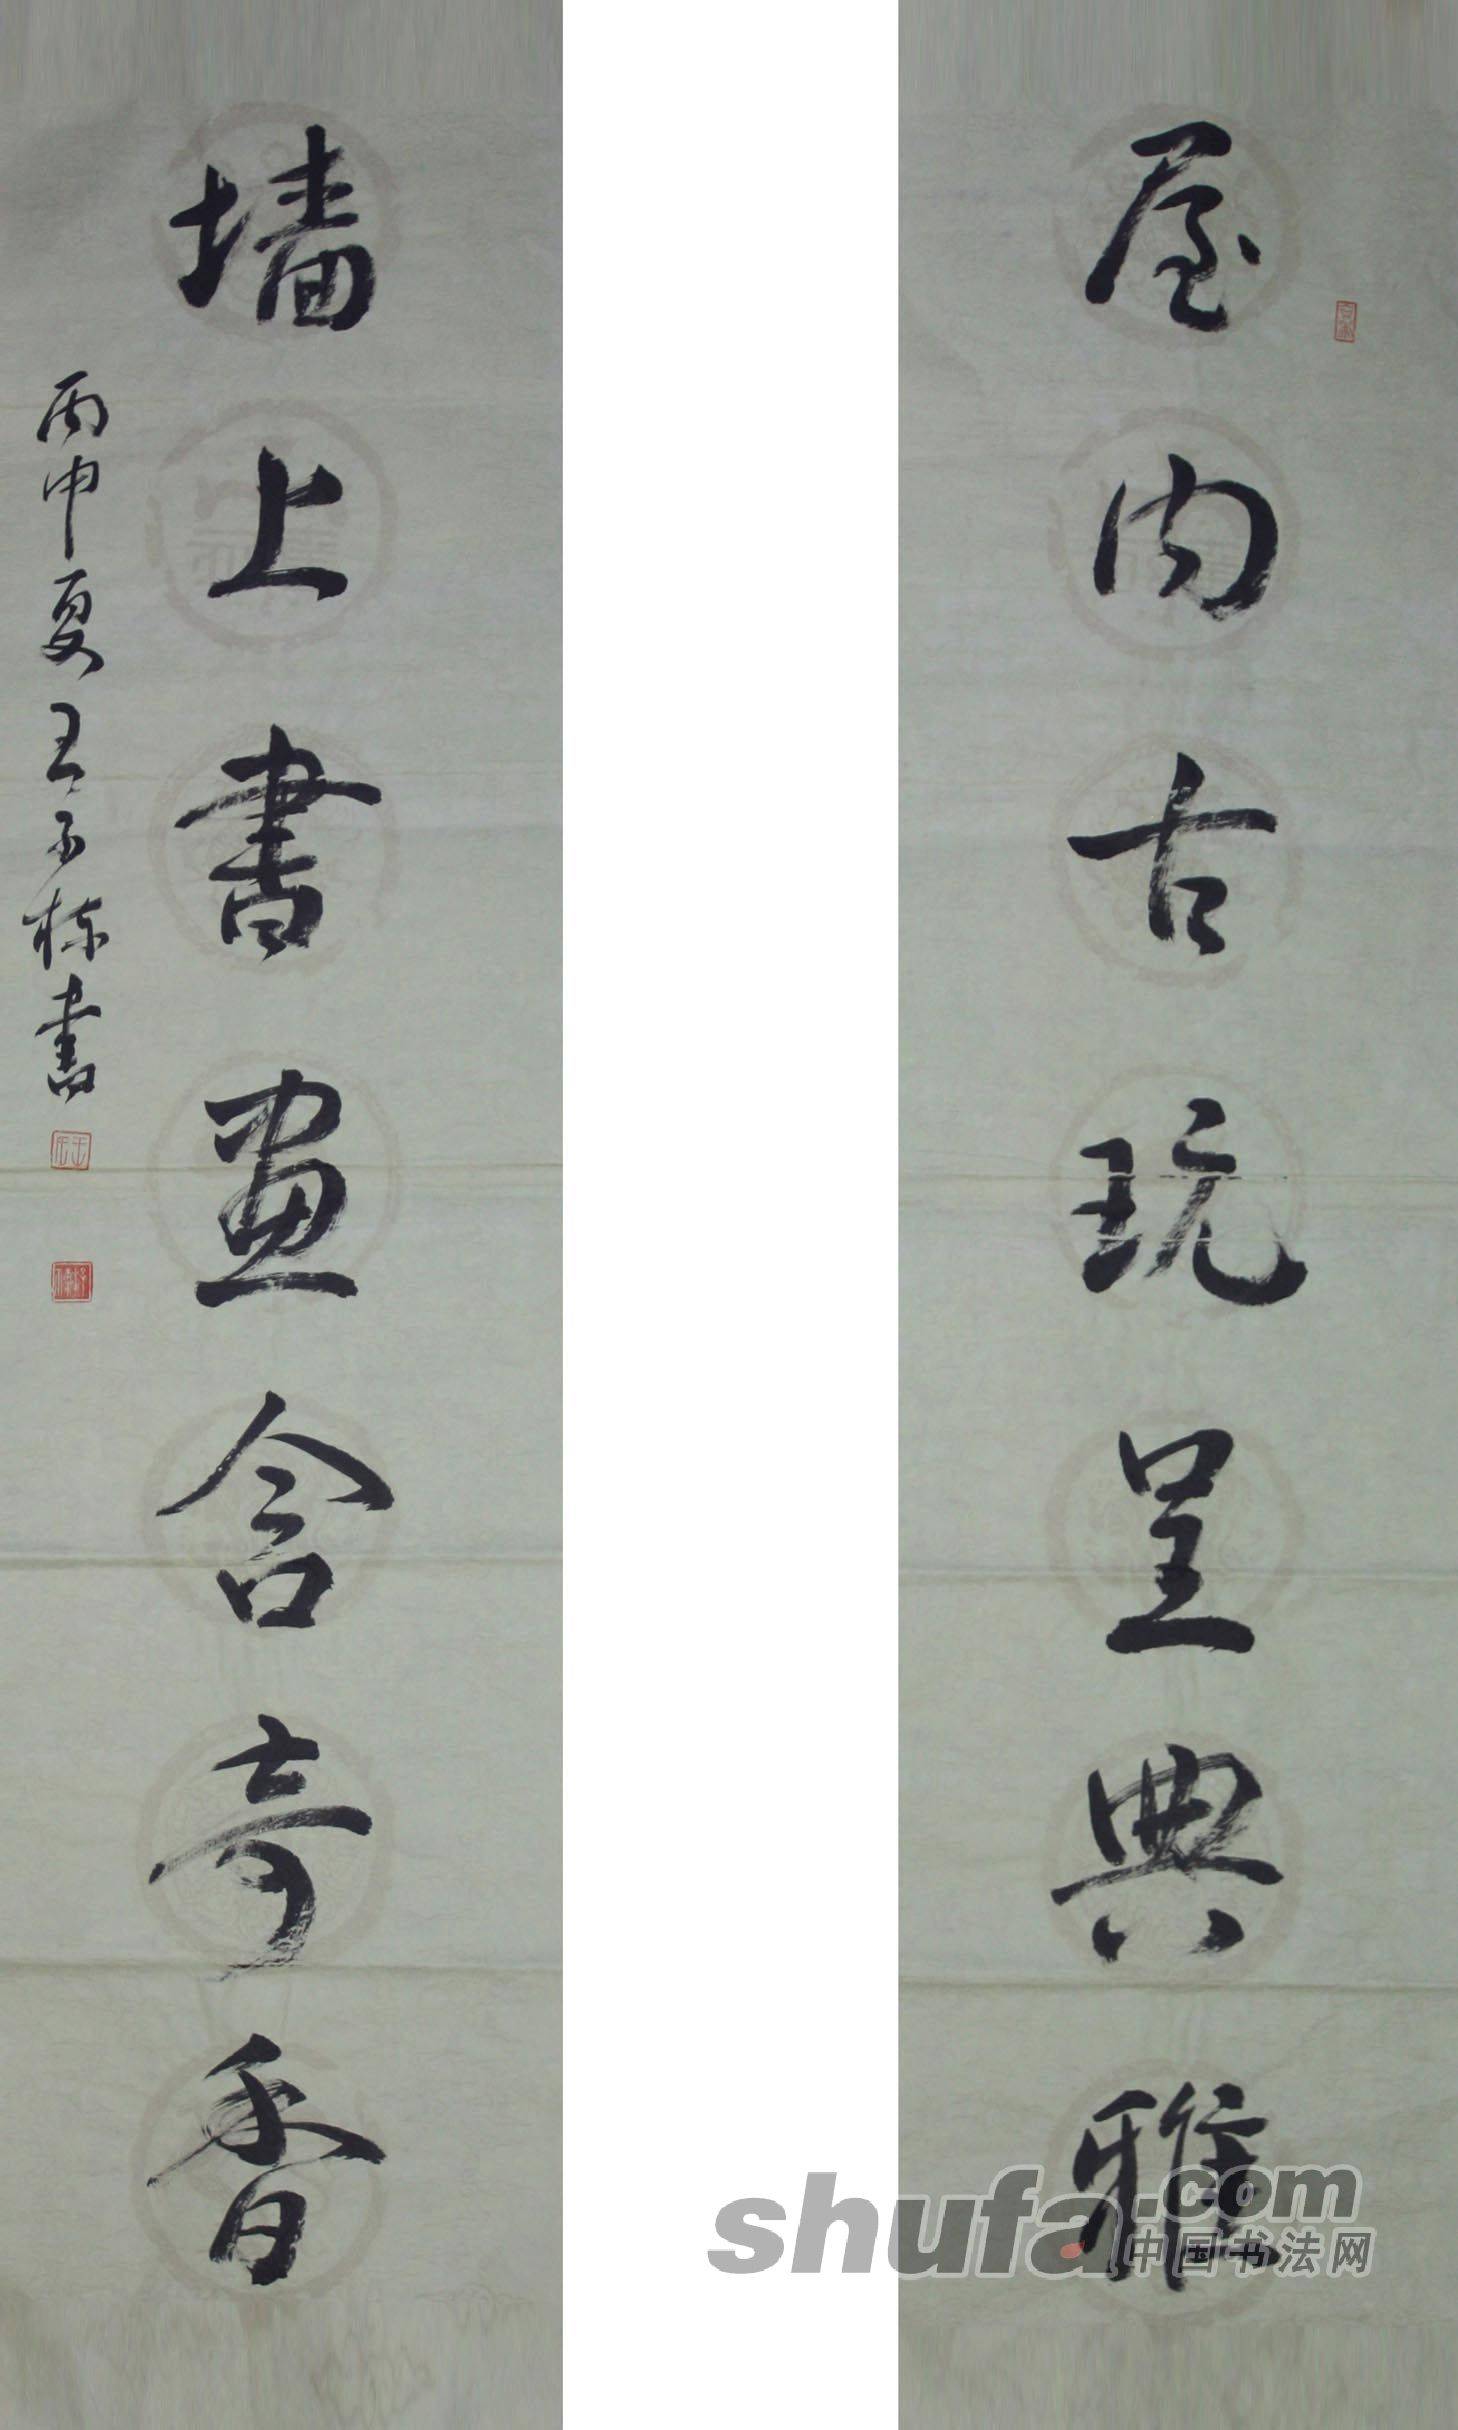 屋内古玩呈典雅
墙上書畫含奇香
丙申夏王子栋書
shufa.com
中国书法网